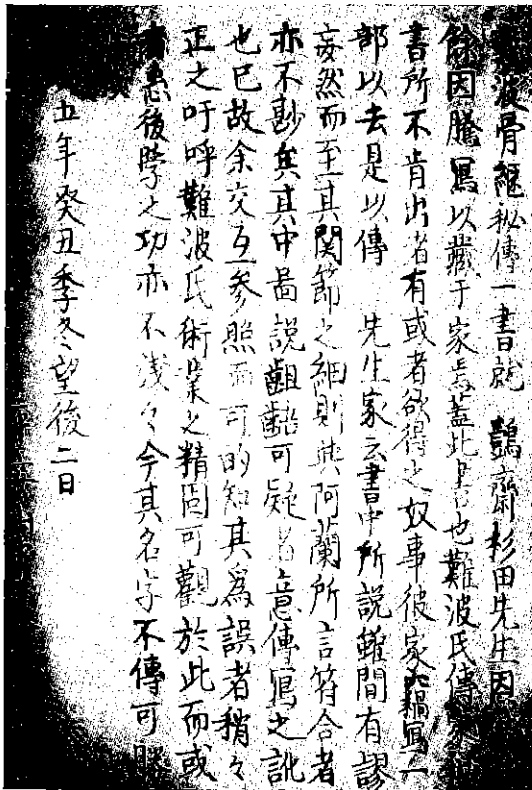 波骨継秘傳一書就　鷧齋杉田先生因
餘因騰冩以藏于家焉蓋此書也難波氏傳
書所不肯出者有或者欲得之奴事彼家竊冩一
部以去是以傳　先生家云書中所説雖間有謬
妄然而至其関節之細則與阿蘭所言符合者
亦不尠矣其中啚説齟齬可疑者意傳冩之訛
也已故余交互参照而可的知其為誤者稍々
正之吁呼難波氏術業之精固可觀於此而或
恵後學之功亦不淺々今其名字不傳可
五年癸丑季冬望後二日